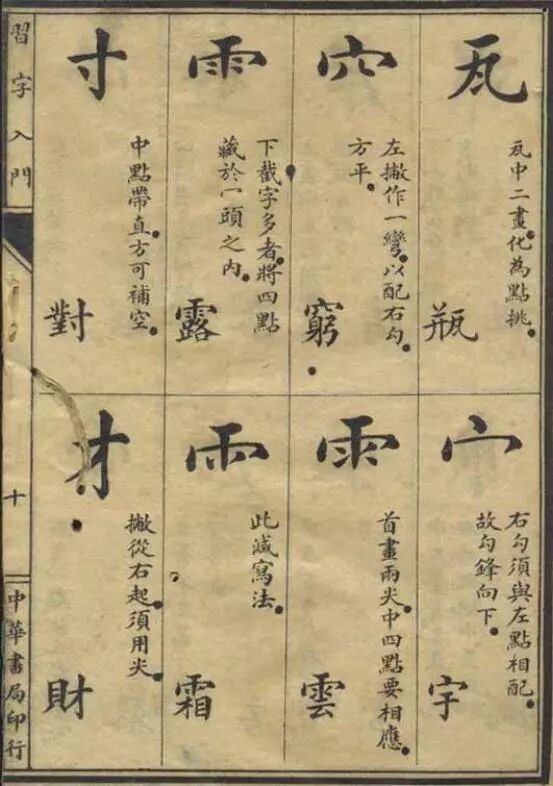 瓦
瓦中二畫化為點挑。
瓶
穴
左撇作一彎。以配右勾。
方平。
窮
雨
下截字多者。將四點
藏於一頭之內。
露
寸
中點帶直。方可補空。
對
宀
右勾須與左點相配。
故勾鋒向下。
宇
雨
首畫兩尖。中四點要相應。
雲
雨
此減寫法。
霜
才
撇從右起。須用尖。
財
習字入門
十
中華書局印行